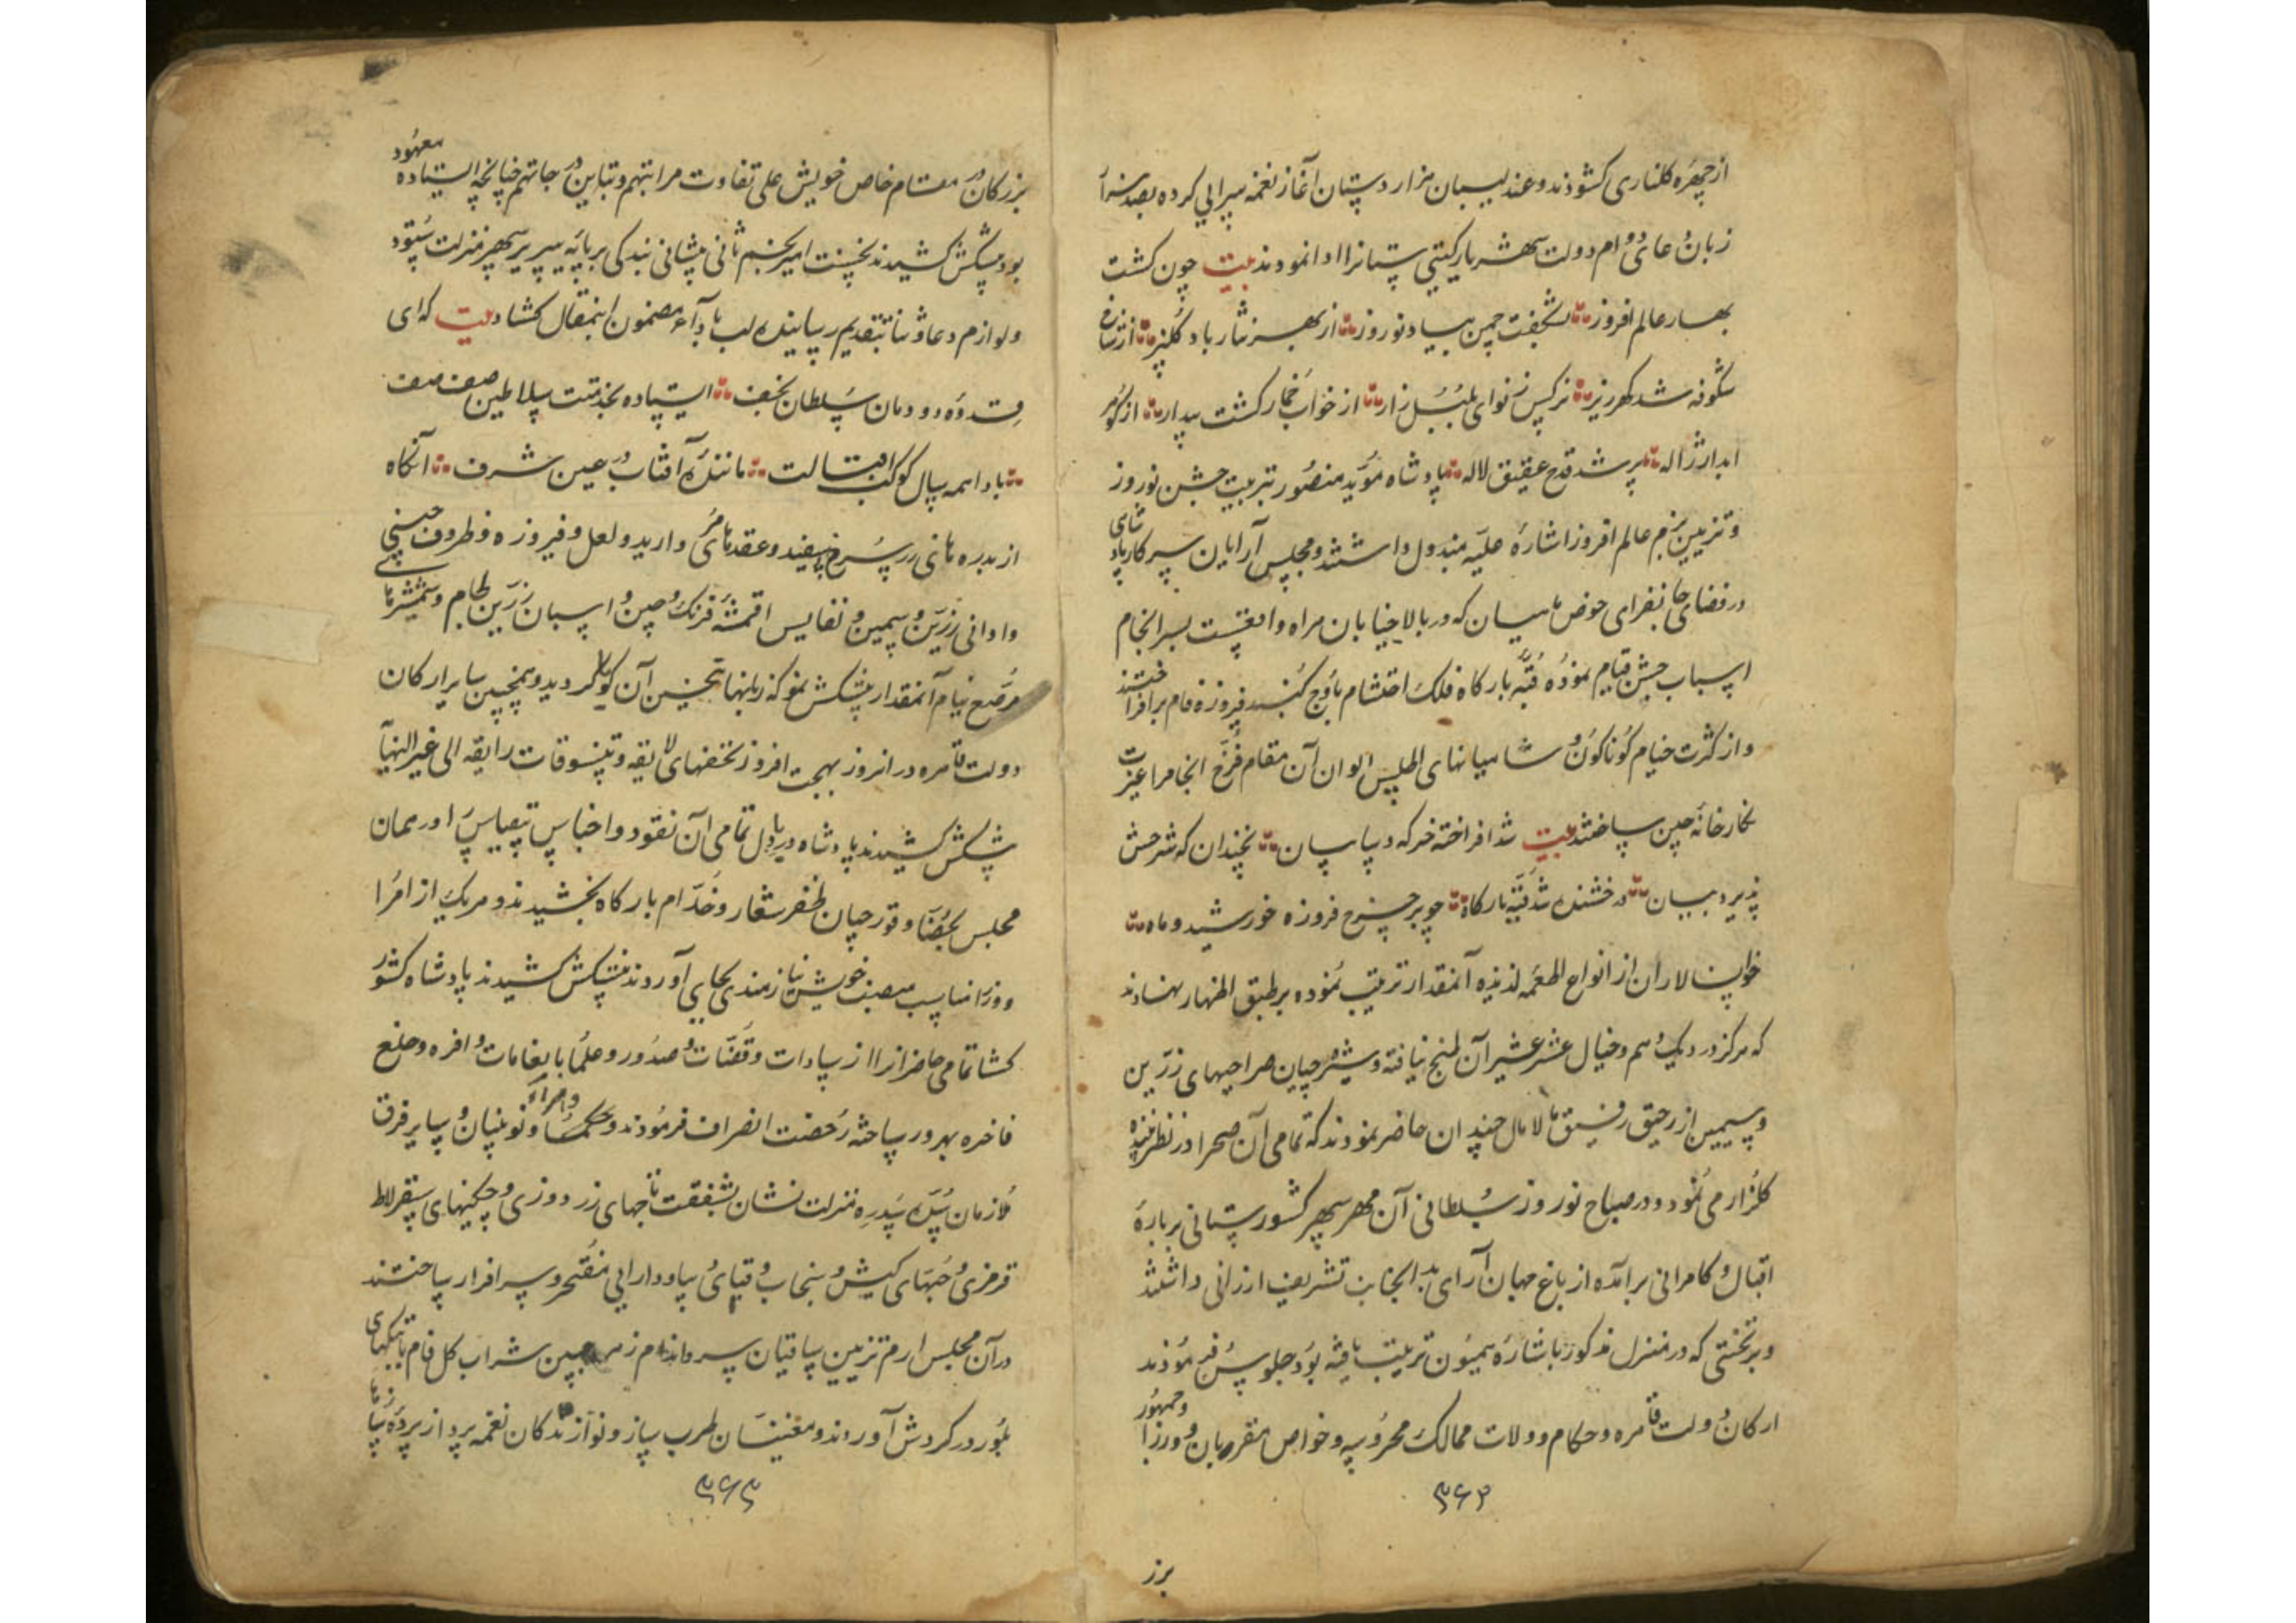 از چهره کلناری کشودند و عندلیبان هزار دستان آغاز نغمه سرایی کرده بصد هزار
زبان دعای دوام دولت شهریار کیتی ستانرا ادا نمودند بیت چون کشت
بهار عالم افروز بشکفت چمن بباد نوروز از بهر نثار باد کلبیز از شاخ
شکوفه شد کهر ریز نرکس ز نوای بلبل زار از خواب خمار کشت بیدار از کوهر
ابدار ژاله پر شد قدح عقیق لاله پادشاه مؤید منصور بترتیب جشن نوروز
و تزیین بزم عالم افروز اشارهٔ علیه مبذول داشتند و مجلس آرایان سرکار پادشاهی
در فضای جانفزای حوض ماهیان که در بالا خیابان هراه واقعست بسرانجام
اسباب جشن قیام نموده قبه بارکاه فلک احتشام باوج کنبد فیروزه فام برافراختند
و از کثرت خیام کوناکون و شامیانهای اطلس الوان آن مقام فرخ انجام را غیرت
نکارخانه چین ساختند بیت شد افراخته خرکه و سایبان نچندان که شرحش
پذیرد بیان درخشنده شد قبه بارکاه چو بر چرخ فیروزه خورشید و ماه
خوانسالاران از انواع اطعمه لذیذه آنمقدار ترتیب نموده بر طبق اظهار نهادند
که هرکز در دیک وهم و خیال عشر عشیر آن طبخ نیافته و شیره چیان صراحیهای زرین
و سیمین از رحیق رقیق مالامال چندان حاضر نمودند که تمامی آن صحرا در نظر
کلزار می نمود و در صباح نوروز سلطانی آن مهر سپهر کشورستانی بر بارهٔ
اقبال و کامرانی برآمده از باغ جهان آرای بدانجانب تشریف ارزانی داشتند
و بر تختی که در منزل مذکور باشارهٔ همیون ترتیب یافته بود جلوس فرمودند
ارکان دولت قاهره و حکام و ولات ممالک محروسه و خواص مقربان و وزرا و جمهور
۳۶۲
برز
بزرکان در مقام خاص خویش علی تفاوت مراتبهم و تباین درجاتهم چنانچه معهود
بود پیشکش کشیدند نخست امیر نجم ثانی پیشانی بندکی بر پایه سریر سپهر منزلت سوده
و لوازم دعا و ثنا بتقدیم رسانیده لب بادآء مضمون اینمقال کشاد بیت که ای
قدوه دودمان سلطان نجف ایستاده بخدمتت سلاطین صف صف
بادا همه سال کوکب اقبالت مانندهٔ آفتاب در عین شرف آنکاه
از بدرهٔ زر سرخ و سفید و عقدهای مروارید و لعل و فیروزه و ظروف چینی
و اوانی زرین و سیمین و نفایس اقمشهٔ فرنک و چین و اسبان زرین لجام و شمشیرهای
مرصع نیام آنمقدار پیشکش نمود که زبانها بتحسین آن کویا کردید و همچنین سایر ارکان
دولت قاهره در انروز بهجت افروز تحفهای لایقه و تنسوقات رایقه الی غیر النهایه
پیشکش کشیدند پادشاه دریادل تمامی آن نقود و اجناس بیقیاس را در همان
مجلس بحضار و قورچیان ظفر شعار و خدام بارکاه بخشیدند و هریک از امرا
و وزرا مناسب منصب خویش نیازمندی بجای آوردند پیشکش کشیدند پادشاه کشور
کشا تمامی حاضرانرا از سادات و قضات و صدور و علما بانعامات وافره و خلع
فاخره بهرور ساخته رخصت انصراف فرمودند و حکما و امرآء و نوئینان و سایر فرق
ملازمان سده سدره منزلت نشان بشفقت تاجهای زردوزی و چکینهای سقرلاط
قرمزی و جبهای کیش و سنجاب و قبای و دارایی مفتخر و سرافراز ساختند
در آن مجلس ارم تزیین ساقیان سرو اندام زهره جبین شراب کل فام
بلور در کردش آوردند و مغنیان طرب ساز و نوازندکان نغمه پرداز پرده
۳۶۳